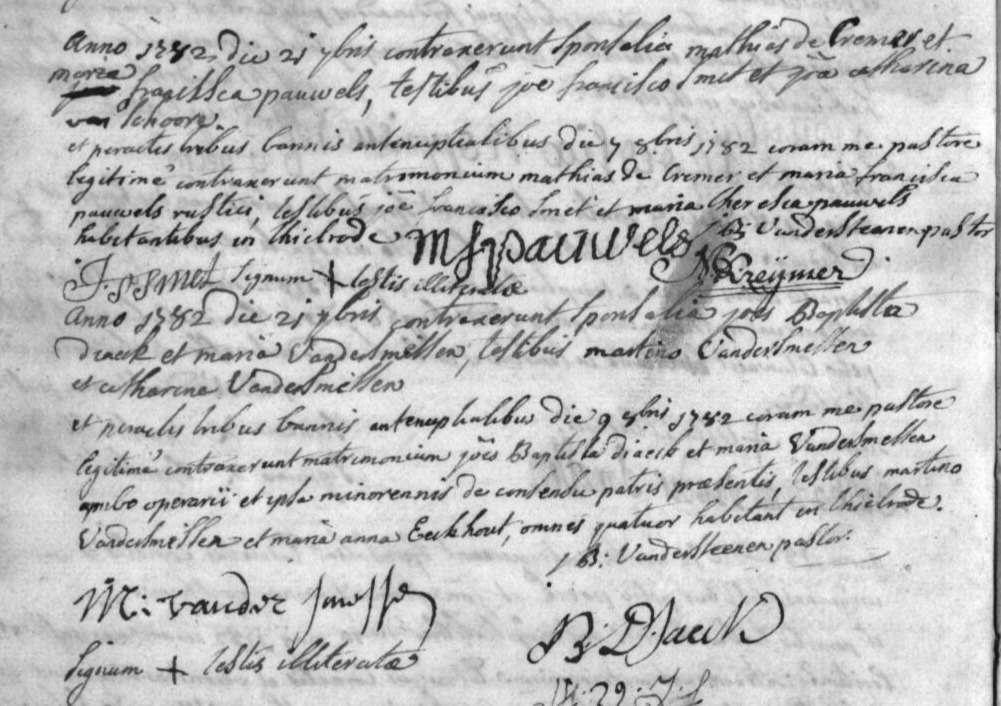 Anno 1782 die 21 7bris contraxerunt sponsalia mathias de Cremer et
maria
francisca pauwels, testibus joē francisco smet et joā catharina
van schoore
et peractis tribus bannis antenuptialibus die 7 8bris 1782 coram me pastore
legitimè contraxerunt matrimonium mathias de Cremer et maria francisca
pauwels rustici, testibus joē francisco smet et maria theresia pauwels
habitantibus in thielrode J B: Vandersteenen pastor
M f pauwels
J. F Smet signum + testis illiteratæ Kreijmer
Anno 1782 die 21 7bris contraxerunt sponsalia joēs Baptista
diaeck et maria Vandersmessen, testibus martino Vandersmessen
et catharina Vandersmessen
et peractis tribus bannis antenuptialibus die 9 8bris 1782 coram me pastore
legitimè contraxerunt matrimonium joēs Baptista diaeck et maria Vandersmessen
ambo operarii et ipsa minorennis de consensu patris præsentis, testibus martino
Vandersmessen et maria anna Eeckhout, omnes quatuor habitant in thielrode.
J B: Vandersteenen pastor.
M: vander smesse
B: Djaeck
signum + testis illiteratæ